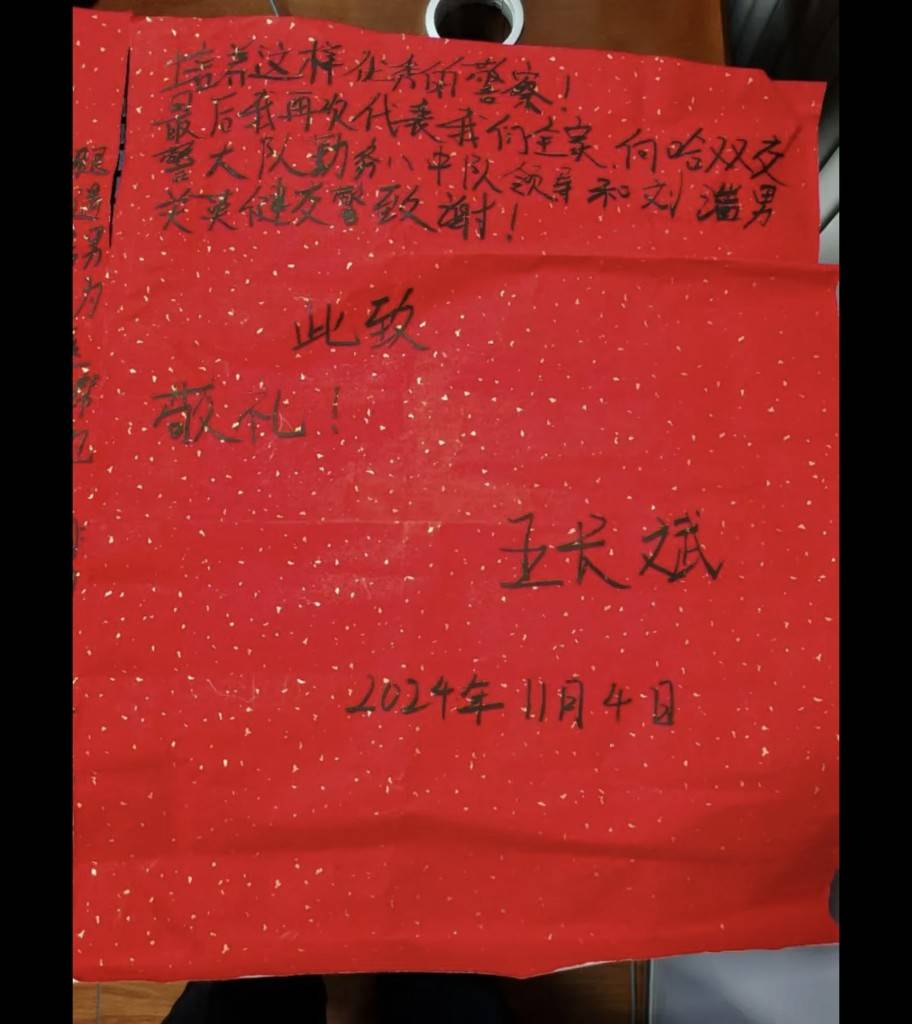 培养这样优秀的警察！
最后我再次代表我们全家向哈双交
警大队勤务八中队领导和刘 男
英健交警致谢！
此致
敬礼！
王长斌
2024年11月4日
退
男
为